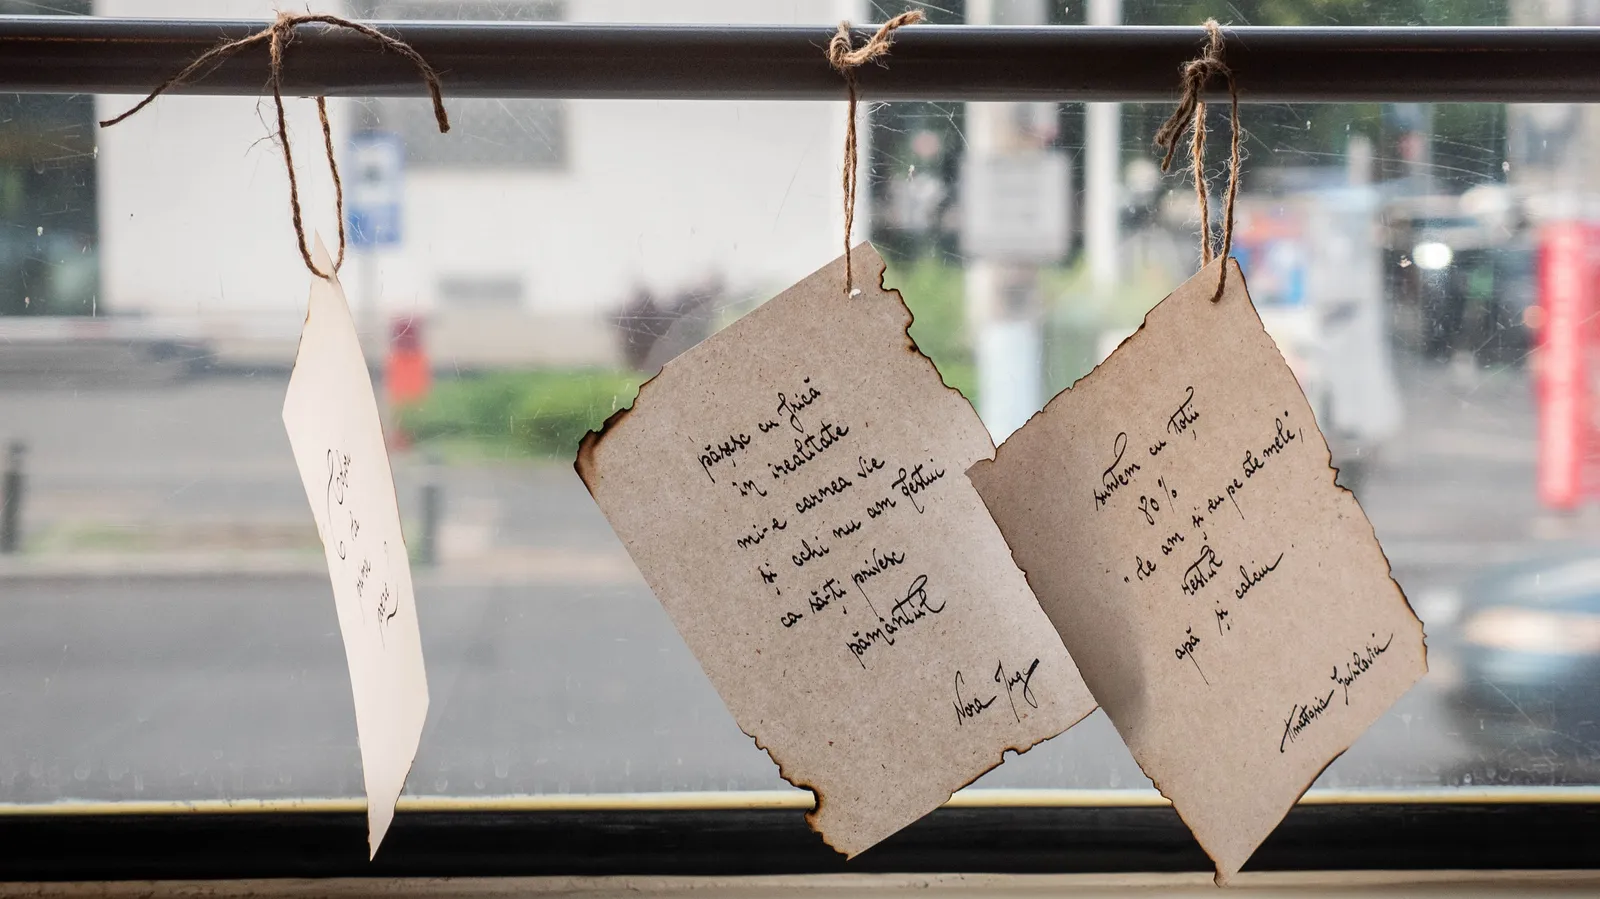 pășesc cu frică
în irealitate
mi-e carnea vie
și ochi nu am destui
ca să-ți privesc
pământul
Nora Iuga
suntem cu toții
80%
"le am și eu pe ale mele,
restul
apă și calciu".
Anastasia Gavrilovici